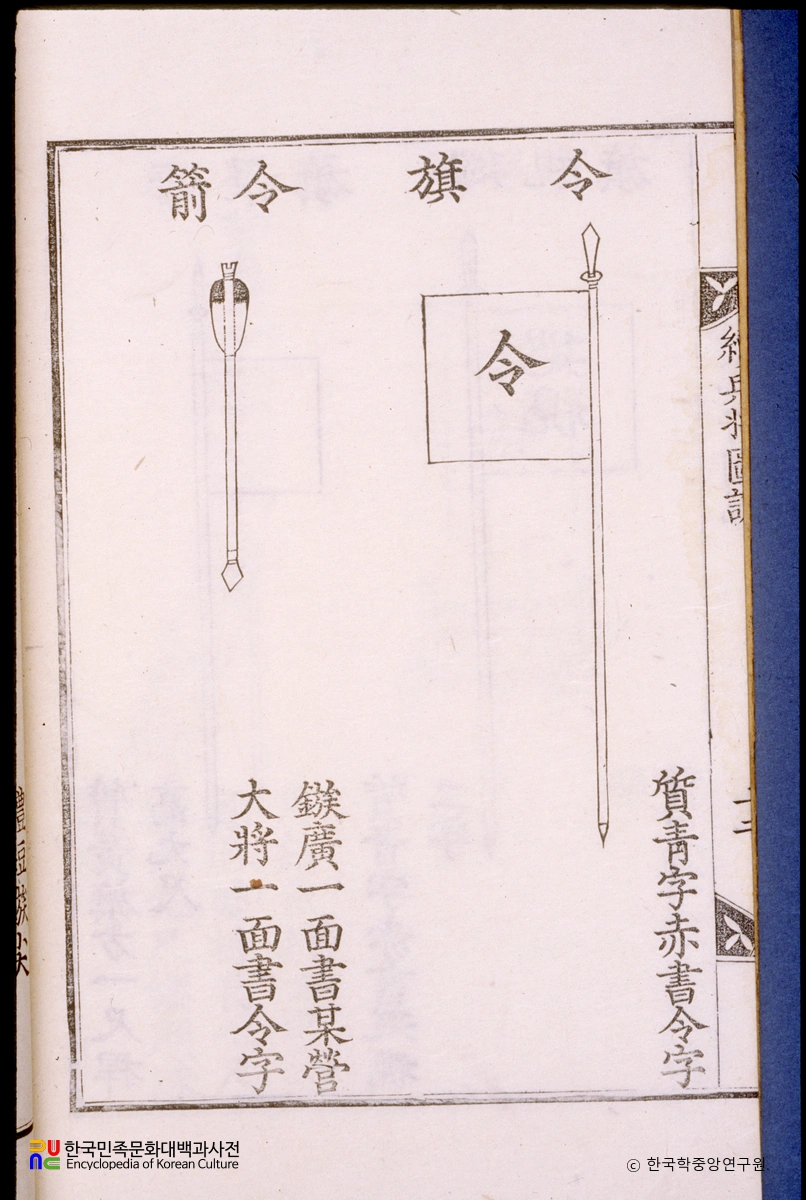 兵將圖說
令旗
令
質靑字赤書令字
令箭
鏃廣一面書某營
大將一面書令字
한국민족문화대백과사전
Encyclopedia of Korean Culture
ⓒ 한국학중앙연구원